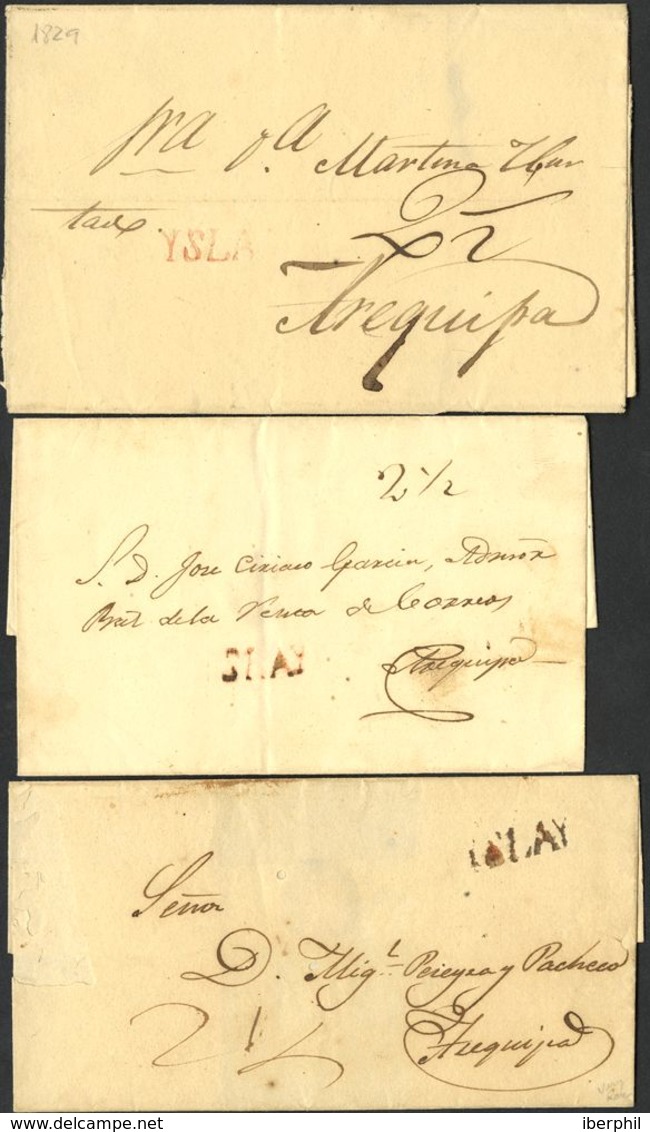 1829
pra dª Martina Hur
tado
YSLA
2½
Arequipa
2½
S. D. Jose Ciriaco Garcia, Admor
Pral de la Renta de Correos
SLAY
Arequipa
ISLAY
Señor
D. Migl. Pereyra y Pacheco
2½
Arequipa
iberphil